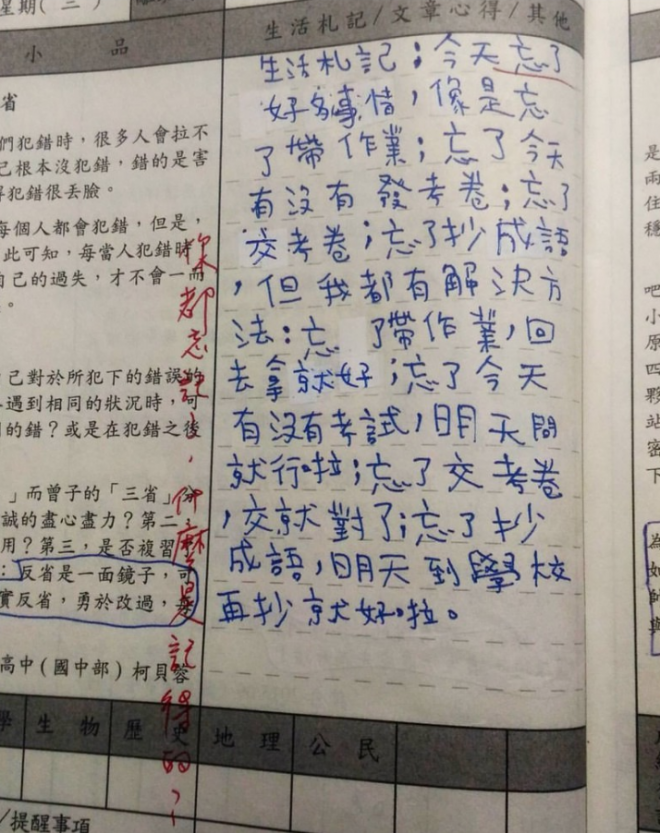 星期(三)
生活札記/文章心得/其他
小品
省
們犯錯時，很多人會拉不
己根本沒犯錯，錯的是害
得犯錯很丟臉。
每個人都會犯錯，但是，
此可知，每當人犯錯時
自己的過失，才不會一而
。
己對於所犯下的錯誤的
遇到相同的狀況時，可
的錯？或是在犯錯之後
」而曾子的「三省」分
誠的盡心盡力？第二，
用？第三，是否複習
：反省是一面鏡子，可
實反省，勇於改過，每
高中(國中部)柯貝蓉
生活札記：今天忘了
好多事情，像是忘
了帶作業；忘了今天
有沒有發考卷；忘了
交考卷；忘了抄成語
，但我都有解決方
法：忘了帶作業，回
去拿就好；忘了今天
有沒有考試，明天問
就行啦；忘了交考卷
，交就對了；忘了抄
成語，明天到學校
再抄就好啦。
你都忘記了，什麼是記得的？
學 生物 歷史 地理 公民
/提醒事項
是
兩
住
穩
吧
小
原
四
夥
站
密
下
為
如
師
與